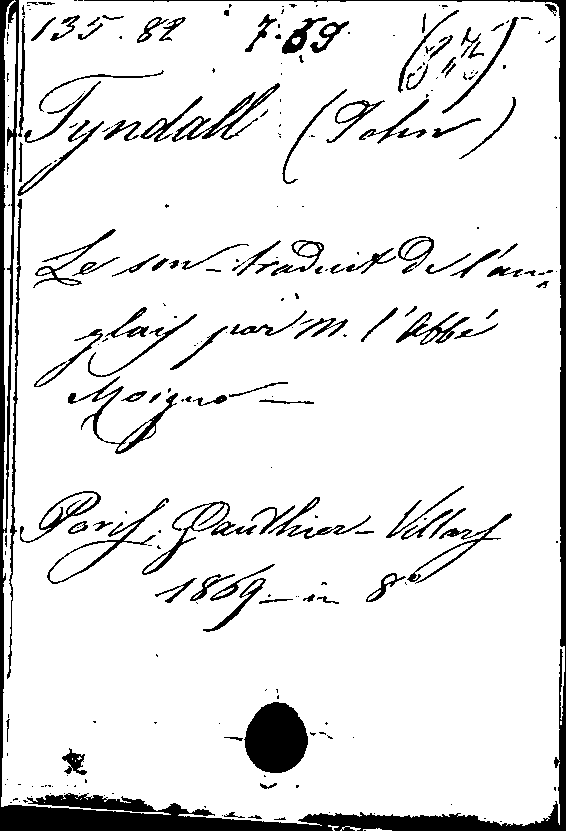 135.82 7.59
Tyndall (John)
Le son - traduit de l'an-
glais par M. l'Abbé
Moigno —
Paris, Gauthier-Villars
1869 - in 8°